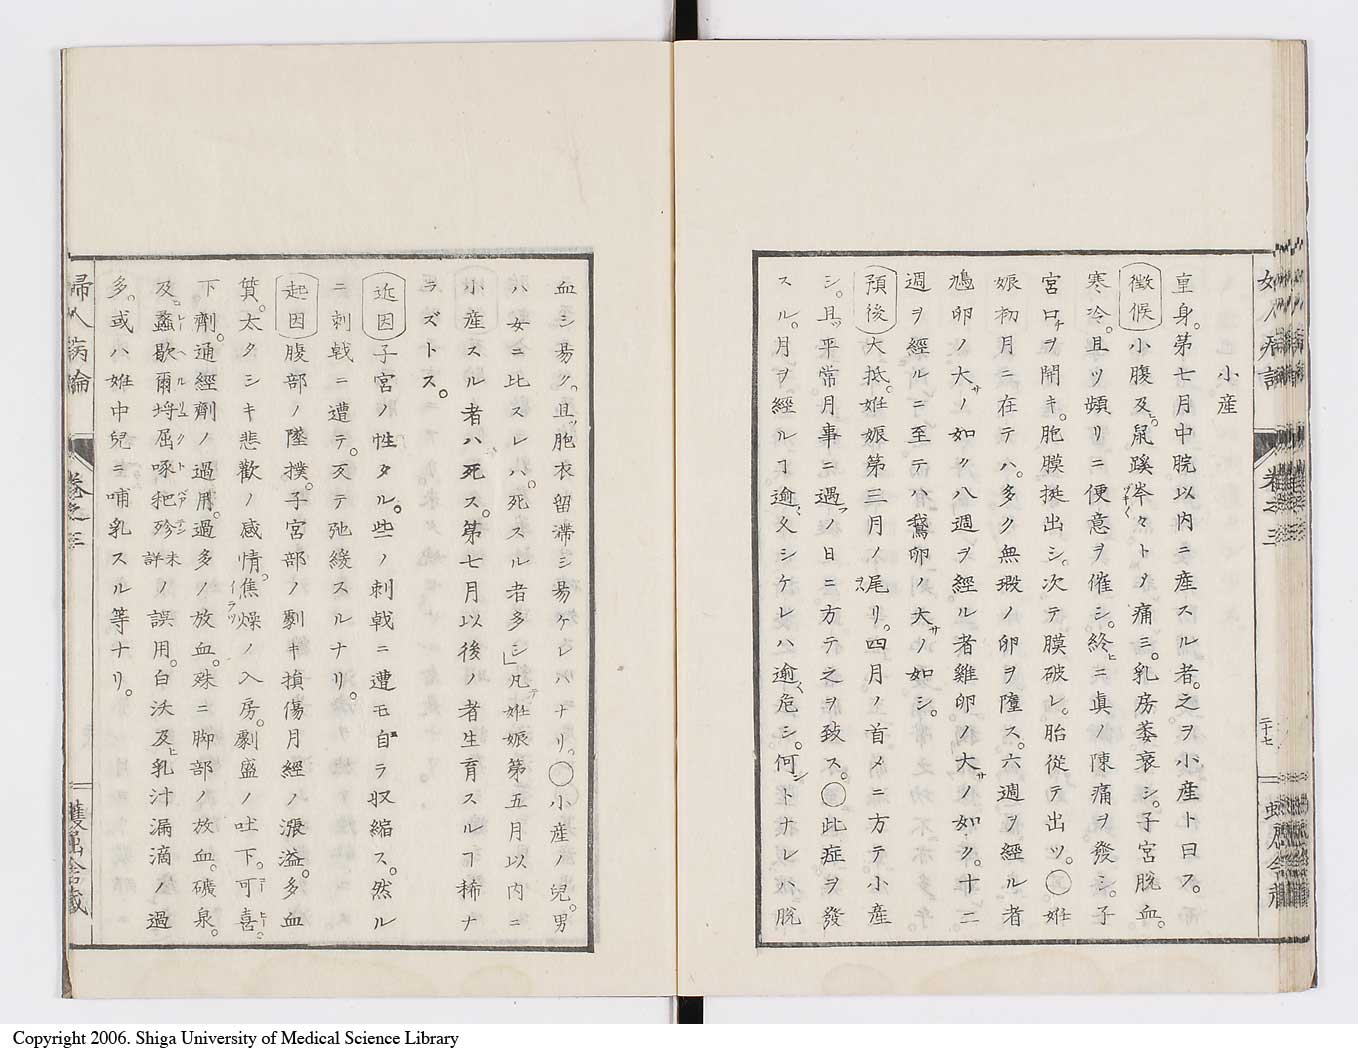 小産
重身。第七月中脘以内ニ産スル者。之ヲ小産ト曰ス。
徴候 小腹及ヒ鼠蹊岑々トノ痛ミ。乳房萎衰シ。子宮脱血。
寒冷。且ツ頻リニ便意ヲ催シ。終ヒニ眞ノ陳痛ヲ發シ。子
宮口ヲ開キ。胞膜挺出シ。次テ膜破レ。胎從テ出ツ。○姙
娠初月ニ在テハ。多ク無瑕ノ卵ヲ墮ス。六週ヲ經ル者
鳩卵ノ大サノ如ク八週ヲ經ル者雞卵ノ大サノ如ク。十二
週ヲ經ルニ至テハ鵞卵ノ大サノ如シ。
預後 大抵。姙娠第三月ノ尾リ。四月ノ首メニ方テ小産
シ。且ツ平常月事ニ遇フノ日ニ方テ之ヲ致ス。○此症ヲ發
スル。月ヲ經ルヿ逾〻久シケレハ逾〻危シ。何ントナレハ脱
血シ易ク。且ツ胞衣留滯シ易ケレハナリ。○小産ノ兒。男
ハ女ニ比スレハ。死スル者多シ」凡テ姙娠第五月以内ニ
小産スル者ハ死ス。第七月以後ノ者生育スルヿ稀ナ
ラズトス。
近因 子宮ノ性タル。些ノ刺戟ニ遭モ自ラ収縮ス。然ル
ニ刺戟ニ遭テ。反テ弛緩スルナリ。
起因 腹部ノ墜撲。子宮部ノ劇キ損傷月經ノ漲溢。多血
質。太タシキ悲歡ノ感情。焦燥ノ入房。劇盛ノ吐下。可喜
下劑。通經劑ノ過用。過多ノ放血。殊ニ脚部ノ放血。礦泉。
及。蠡歇爾埒屈啄把殄未詳ノ誤用。白沃及ヒ乳汁漏滴ノ過
多。或ハ姙中兒ニ哺乳スル等ナリ。
婦人病論
卷之三
二十七
Copyright 2006. Shiga University of Medical Science Library